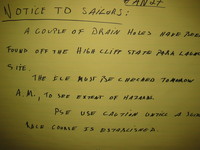 NOTICE TO SAILORS:
A COUPLE OF DRAIN HOLES HAVE BEEN
FOUND OFF THE HIGH CLIFF STATE PARK LAUNCH
SITE.
THE ICE MUST BE CHECKED TOMORROW
A.M., TO SEE EXTENT OF HAZARD.
PLE USE CAUTION UNTIL A
RACE COURSE IS ESTABLISHED.